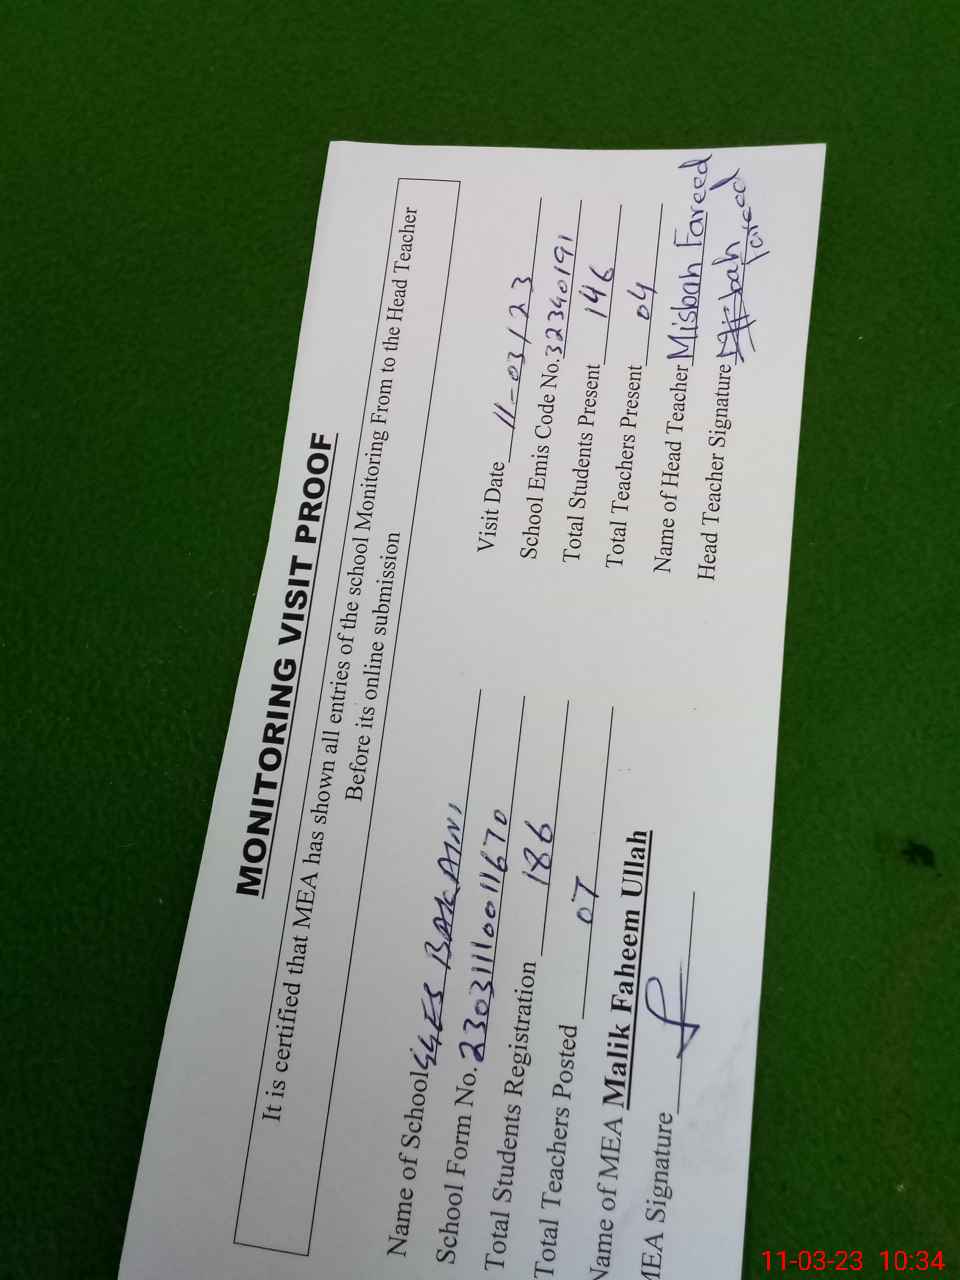 MONITORING VISIT PROOF
It is certified that MEA has shown all entries of the school Monitoring From to the Head Teacher
Before its online submission
Name of School GGES BAKAINI
Visit Date 11-03/23
School Form No. 230311110011670
School Emis Code No. 32340191
Total Students Registration 186
Total Students Present 146
Total Teachers Posted 07
Total Teachers Present 04
Name of MEA Malik Faheem Ullah
Name of Head Teacher Misbah Fareed
MEA Signature
Head Teacher Signature Misbah Fareed
11-03-23 10:34